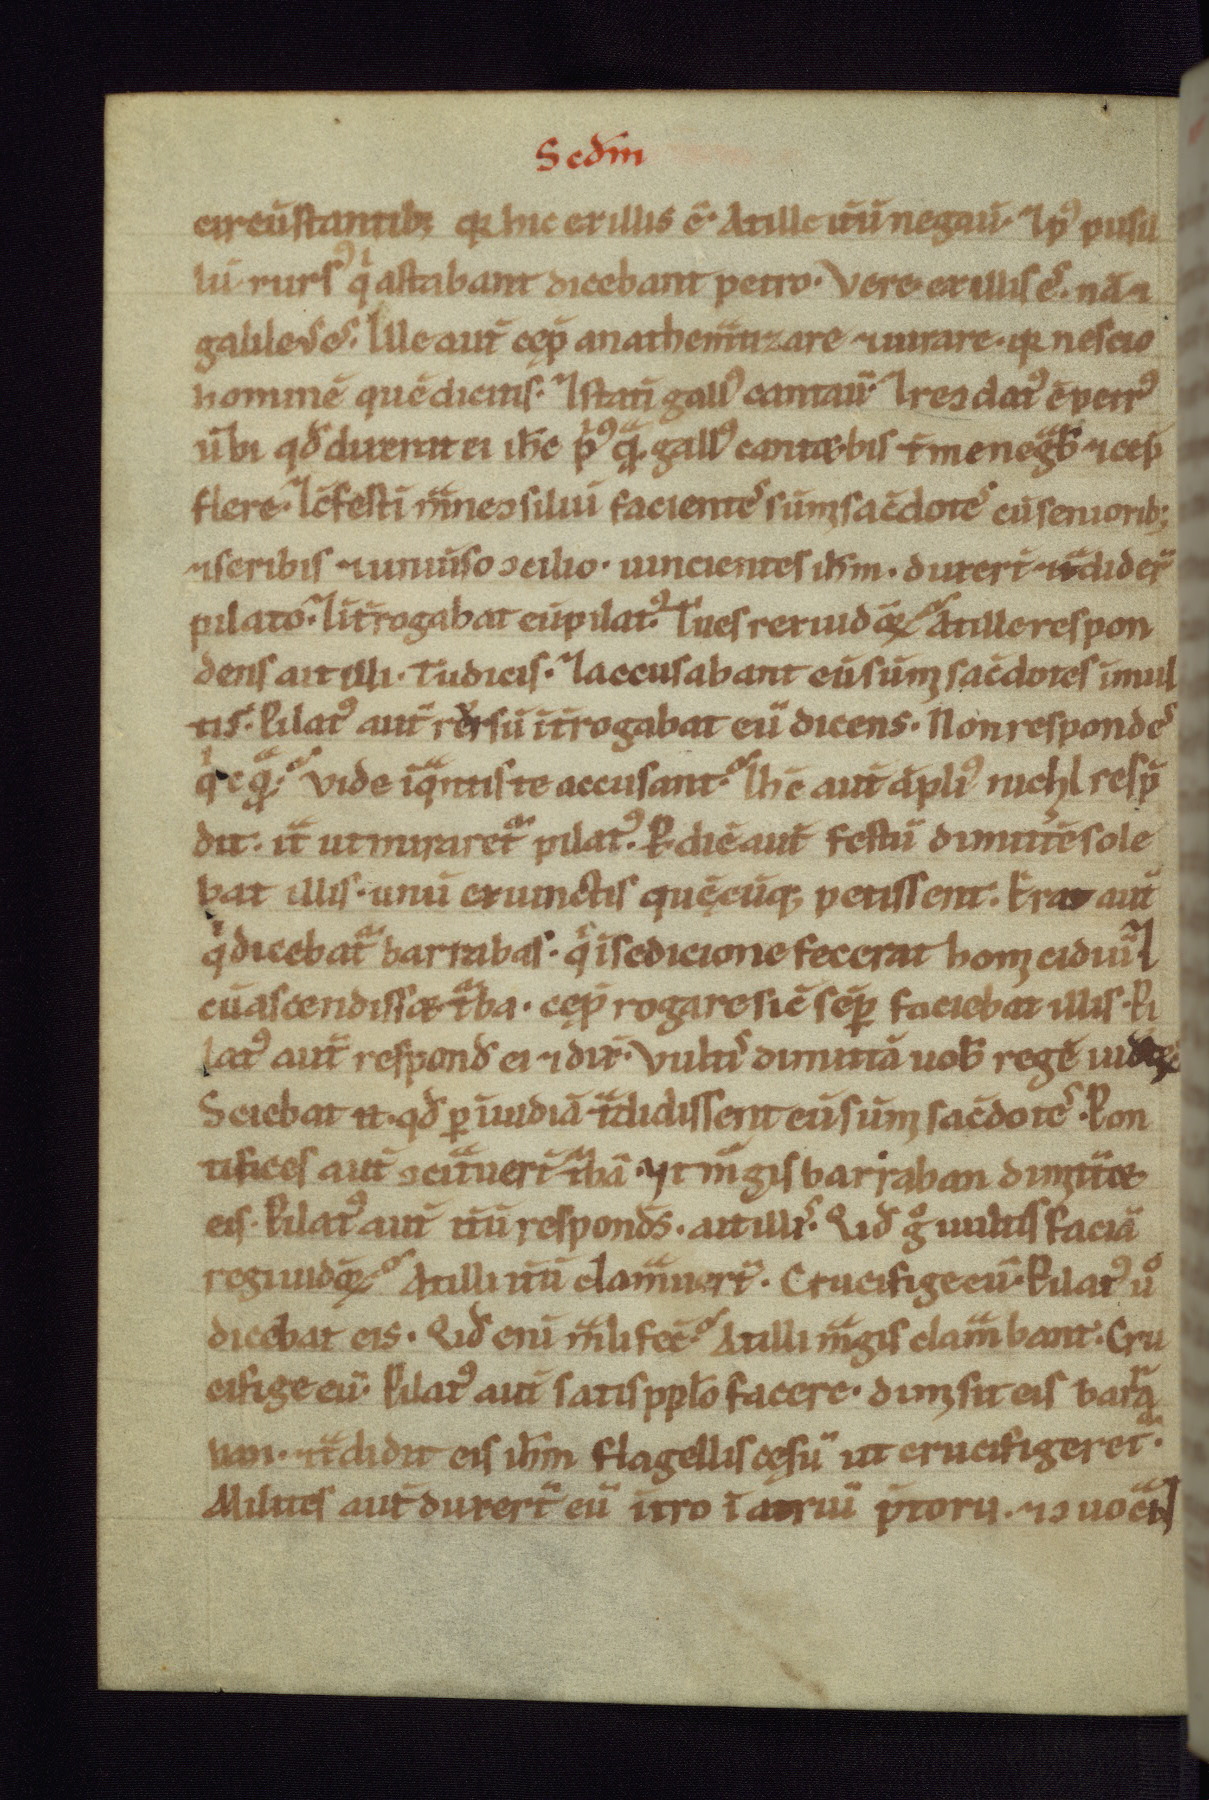 Scd̄m
circūstantib; qr hic ex illis ē. At ille itū negau̅. ⁊ p⁹ pusil
lū rurs⁹ qͥ astabant dicebant petro. Vere ex illis es. nā ⁊
galileꝰ es. Ille aut̄ cęp̄ anathemᵃtizare ⁊ iurare. qr nescio
hominē quē dicitis. ⁊ statī gall⁹ cantau̅. ⁊ recordat⁹ ē petr⁹
ūbi qd̄ dixerat ei ih̄c pͥ⁹ qᵃ gall⁹ cantet bis t̄ me negᵃb ⁊ cep̄
flere. ⁊ ↄfestī mᵃne ↄsiliū facientes sūm̄ sac̄dotes cū seniorib;
⁊ scribis ⁊ uniu̅so ↄcilio. uincientes ih̄m. duxer̄t ⁊ tᵃdider̄
pilato. ⁊ īt̄rogabat eū pilat⁹. Tu es rex iudęoꝝ? At ille respon
dens ait illi. Tu dicis. ⁊ accusabant eū sūm̄ sac̄dotes ī mul
tis. Pilat⁹ aut̄ rursū īt̄rogabat eū dicens. Non respondes
qͥcqᵃ? Vide īqᵃntis te accusant. Ih̄c aut̄ āpli⁹ nichl resp̄
dit. itᵃ ut miraret̄ pilat⁹. P diē aut̄ festū dimitt̄e sole
bat illis. unū ex uinctis quēcūq; petissent. Erat aut̄
qͥ dicebat̄ barrabas. qͥ ī sedicione fecerat homicidiū. ⁊
cū ascendisset t̄ba. cęp̄ rogare sic̄ sēp̄ faciebat illis. Pi
lat⁹ aut̄ respond̄ ei ⁊ dix̄. Vultis dimittā uob̄ regē iudęoꝝ.
Sciebat n̄. qd̄ p̱ inuidiā tᵃdidissent eū sūm̄ sac̄dotes. Pon
tifices aut̄ ↄcitᵃuer̄t t̄bā. ut mᵃgis barraban dimittet
eis. Pilat⁹ aut̄ itū respond̄s. ait illis. Qid gͦ uultis faciā
regi iudęoꝝ? At illi itū clamᵃuer̄t. Crucifige eū. Pilat⁹ uͦ
dicebat eis. Qid enī mᵃli fec̄? At illi mᵃgis clamᵃbant. Cru
cifige eū. Pilat⁹ aut̄ satis pp̱lo facere. dimisit eis barra
ban. ⁊ tᵃdidit eis ih̄m flagellis cęsū ut crucifigeret̄.
Milites aut̄ duxer̄t eū ītro ī atriū p̄torii. ⁊ ↄuocᵃt